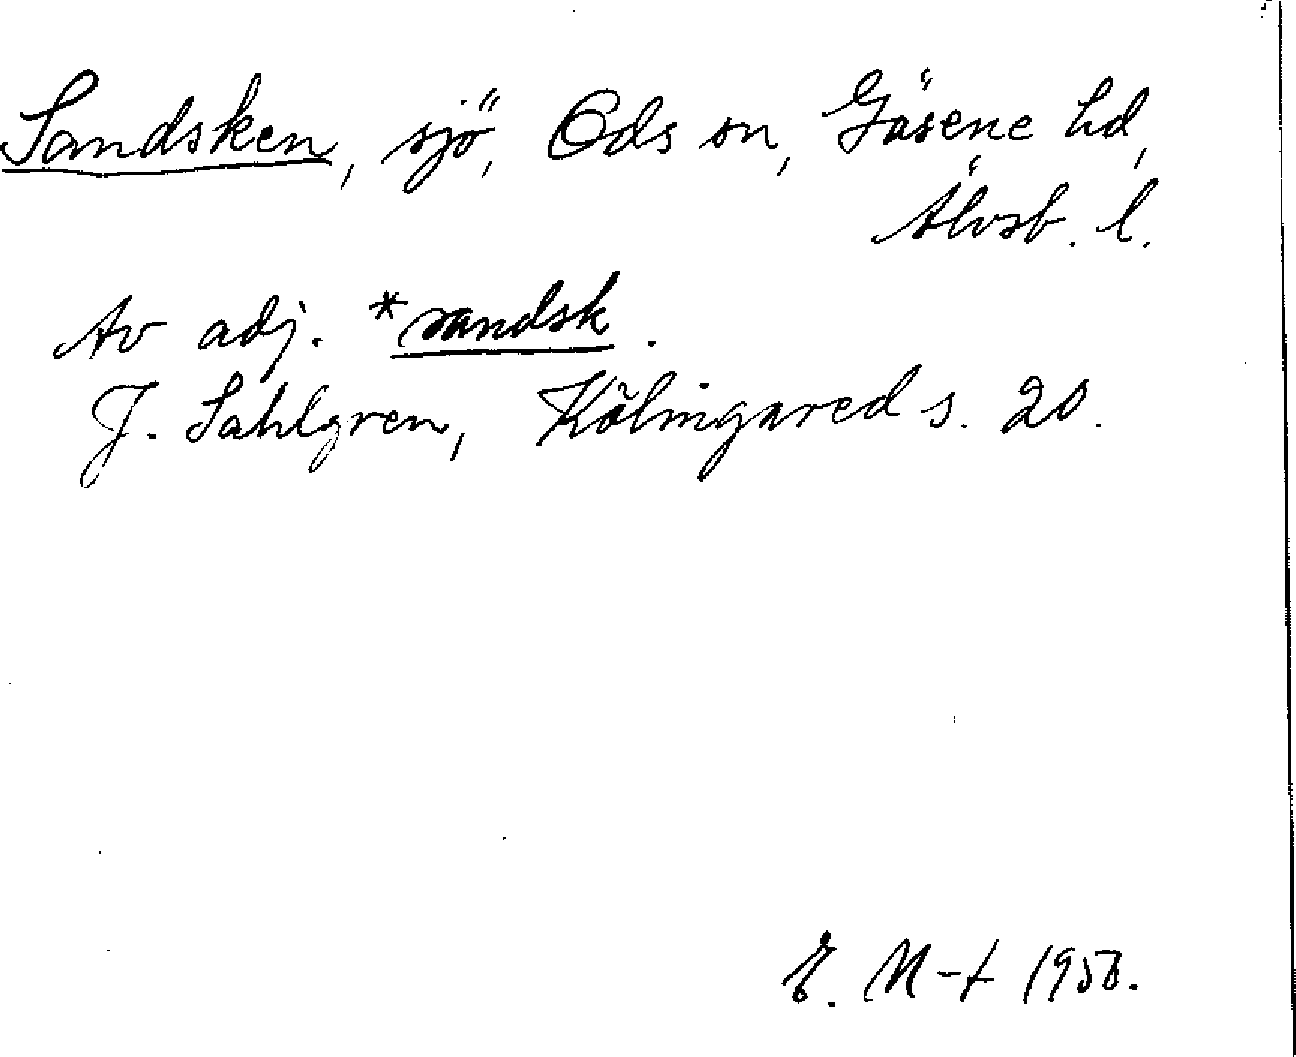 Sandsken, sjö, Ods sn, Gäsene hd,
Älvsb. l.
Av adj. *sandsk.
J. Sahlgren, Kölingared s. 20.
E. M-t 1956.